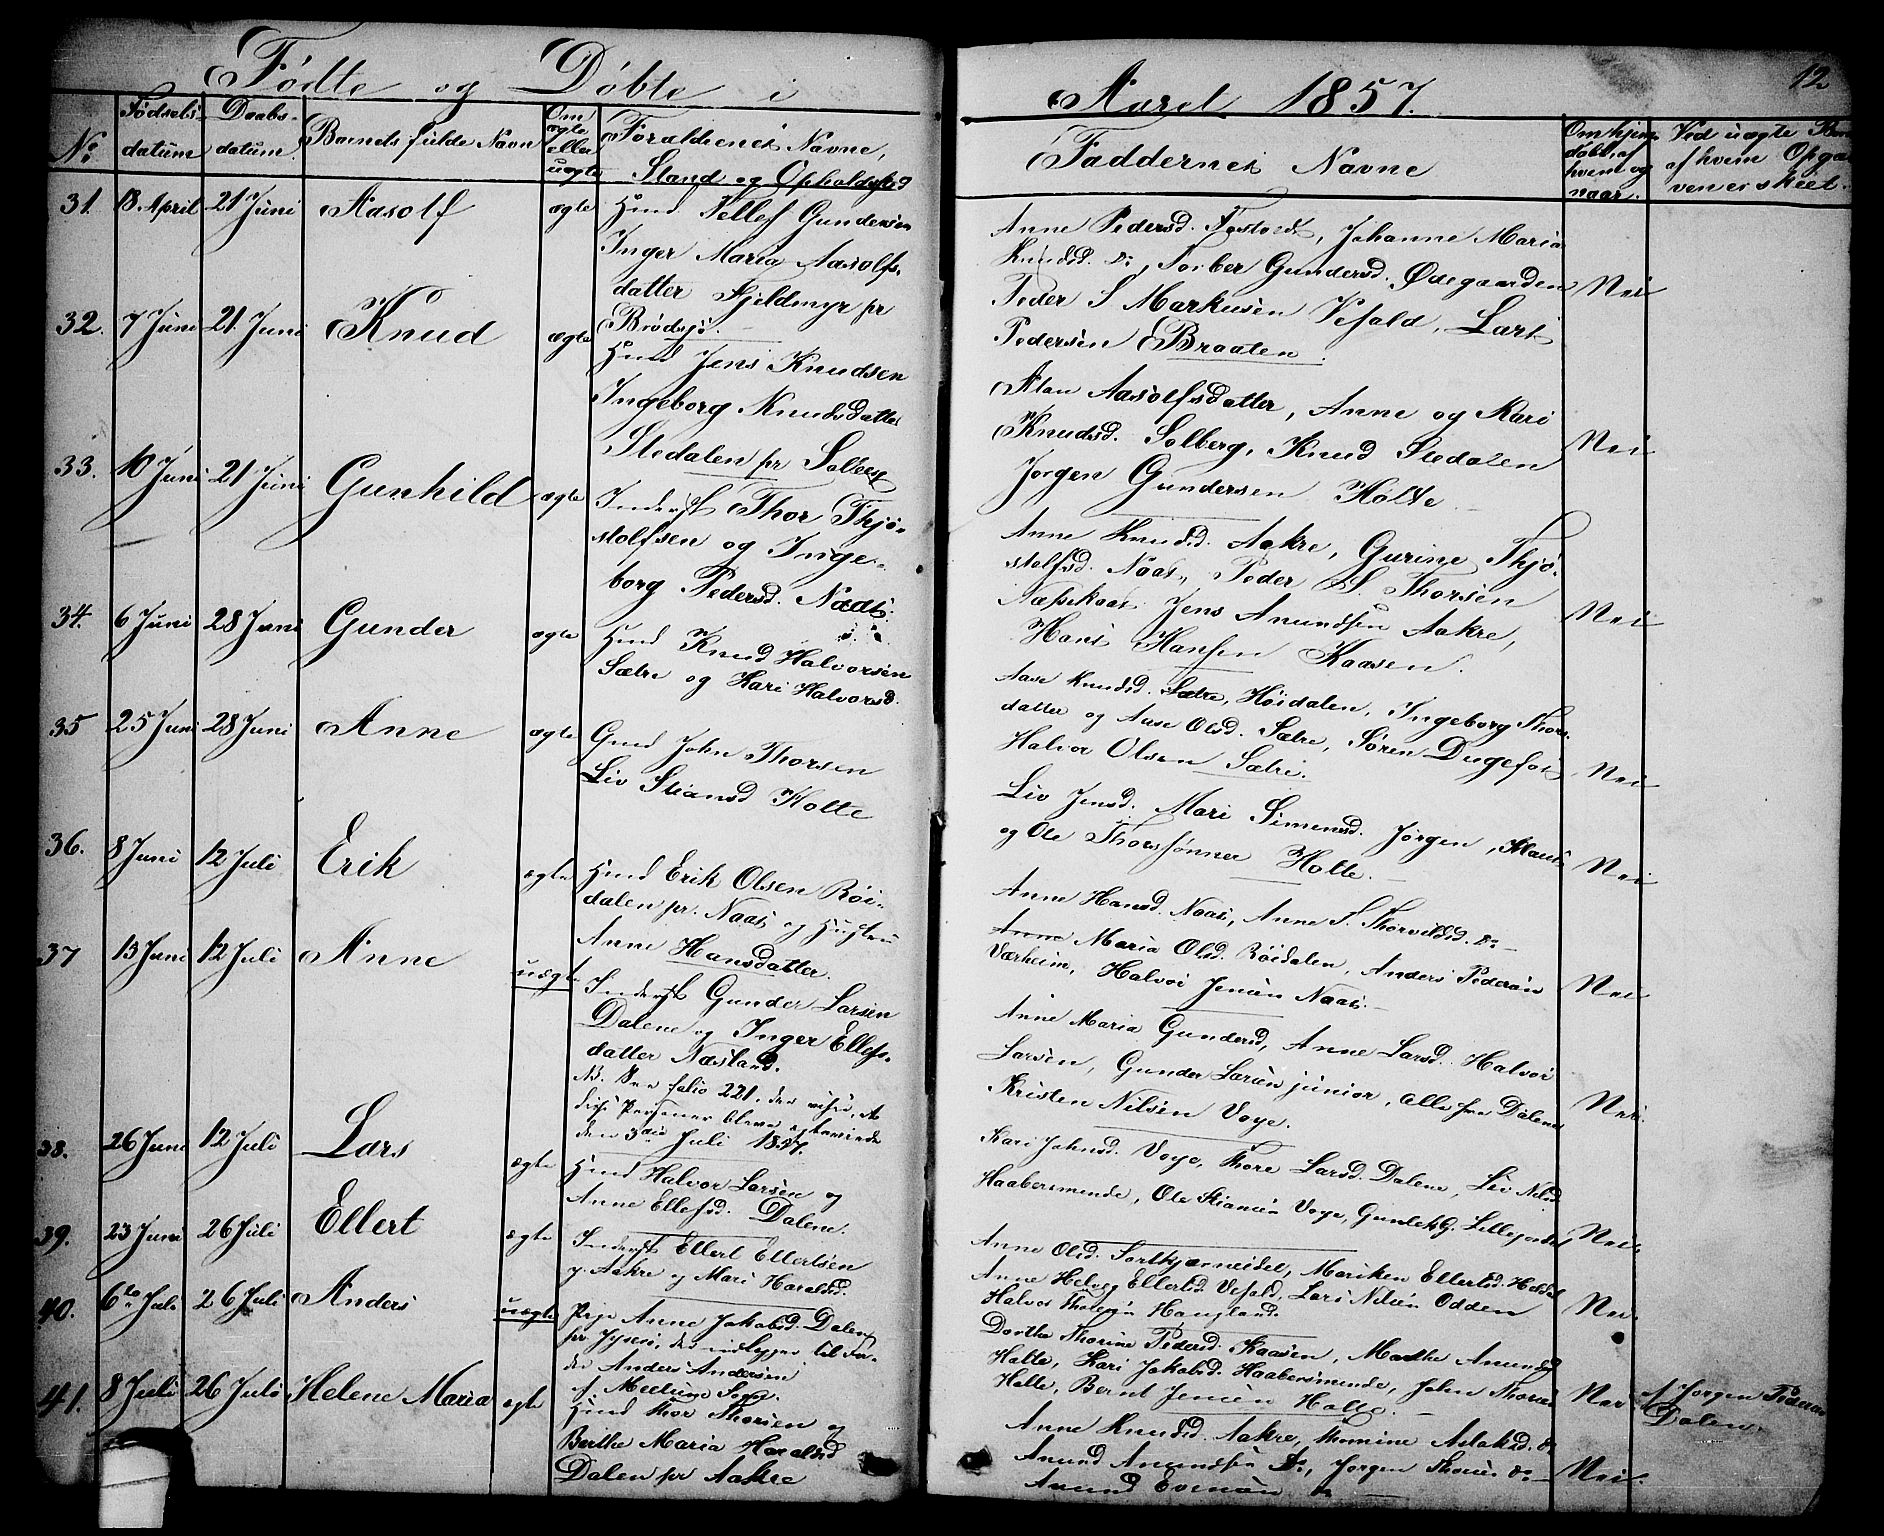 Födte og Döbte i
Aaret 1857.
12
No:
Födsels-
datum
Daabs-
datum.
Barnets fulde Navn
Om
ægte
eller
uægte
Forældrenes Navne,
Stand og Opholdssted
Faddernes Navne
Om hjem-
döbt, af
hvem og
naar.
Ved uægte Børn
af hvem Opga-
ven er skeet.
31. 18. April 21 Juni Aasolf ægte Hmd Tellef Gundersen
Inger Maria Aasolfs-
datter Fjeldmyr pr
Brödsjö.
Anne Pedersd. Fostvedt, Johanne Maria
Knudsd. do, Torber Gundersd. Ödegaarden
Peder S Markusen Vefald, Lars
Pedersen Braaten.
Nei
32. 7 Juni 21. Juni Knud ægte Hmd Jens Knudsen
Ingeborg Knudsdatter
Stedalen pr Solberg
Aasolfsdatter, Anne og Kari
Knudsd. Solberg, Knud Stedalen
Jørgen Gundersen Holte
Nei
33. 10 Juni 21 Juni Gunhild ægte Inderst Thor Thjö-
stolfsen og Inge-
borg Pedersd. Næs
Anne Knudsd. Aakre, Gurine Thjö-
stolfsd. Naas, Peder S. Thorsen
Jens Anundsen Aakre,
Hans Hansen Kaasen.
Nei
34. 6 Juni 28 Juni Gunder ægte Hmd Knud Halvorsen
Sætre og Kari Halvorsd.
Aase Knudsd. Sætre, Höidalen, Ingeborg Thors-
datter og Aase Olsd. Sætre, Sören Dugefos
Halvor Olsen Sætre.
Nei
35 25 Juni 28 Juni Anne ægte Gmd John Thorsen
Liv Stiansd Holte
Liv Jensd. Mari Simensd. Jørgen, Hans
og Ole Thorssønner Holte.
Nei
36. 8 Juni 12 Juli Erik ægte Hmd Erik Olsen Röi-
dalen pr. Naas og Hustru
Anne Hansdatter.
Anne Hansd. Naas, Anne S. Thorvildsd. do
Anne Maria Olsd. Röidalen, Anders Pedersen
Værheim, Halvor Jensen Naas.
Nei
37 13 Juni 12 Juli Anne uægte Inderst Gunder Larsen
Dalene og Inger Ellefs-
datter Næsland.
NB. See folio 221, der vises, at
disse Personer bleve egteviede
den 3die Juli 1857.
Anne Maria Gundersd, Anne Larsd. Halvor
Larsen, Gunder Larsen junior, alle fra Dalene
Kristen Nilsen Voje.
Nei.
38. 26 Juni 12 Juli Lars ægte Hmd Halvor Larsen og
Anne Ellefsd. Dalene.
Kari Johnsd. Voje, Thore Larsd. Dalene, Liv Nilsd
Haabersmende, Ole Stiansen Voje, Gunlek G. Lillejordet
Nei
39. 23 Juni 26 Juli Ellert ægte Inderst Ellert Ellertsen
p. Aakre og Mari Haralsd.
Anne Olsd. Sortkjærneidet, Mariken Ellertsd. Holdal
Anne Helvig Ellertsd Vefald, Lars Nilsen Odden
Halvor Tholesen Haugland
Nei
40. 6te Juli 26 Juli Anders uægte Pige Anne Jakobsd. Dalen
pr , der udlægger til Fa-
der Anders Andersen
f. Meelum Sogn.
Dorthe Thorine Pedersd. Kaasen, Marthe Anundsd
Holte, Kari Jakobsd. Haabersmende, John Thorsen
Holte, Bernt Jensen Holte.
Nei
af Jørgen Pedersen
Dalen.
41. 8 Juli 26 Juli Helene Maria ægte Hmd Thor Thorsen og
Berthe Maria Haralsd
Dalen pr Aakre
Anne Knudsd. Aakre, Thomine Aslaksd. do
Anund Anundsen do, Jørgen Thorsen do
Anund Evensen do
Nei.